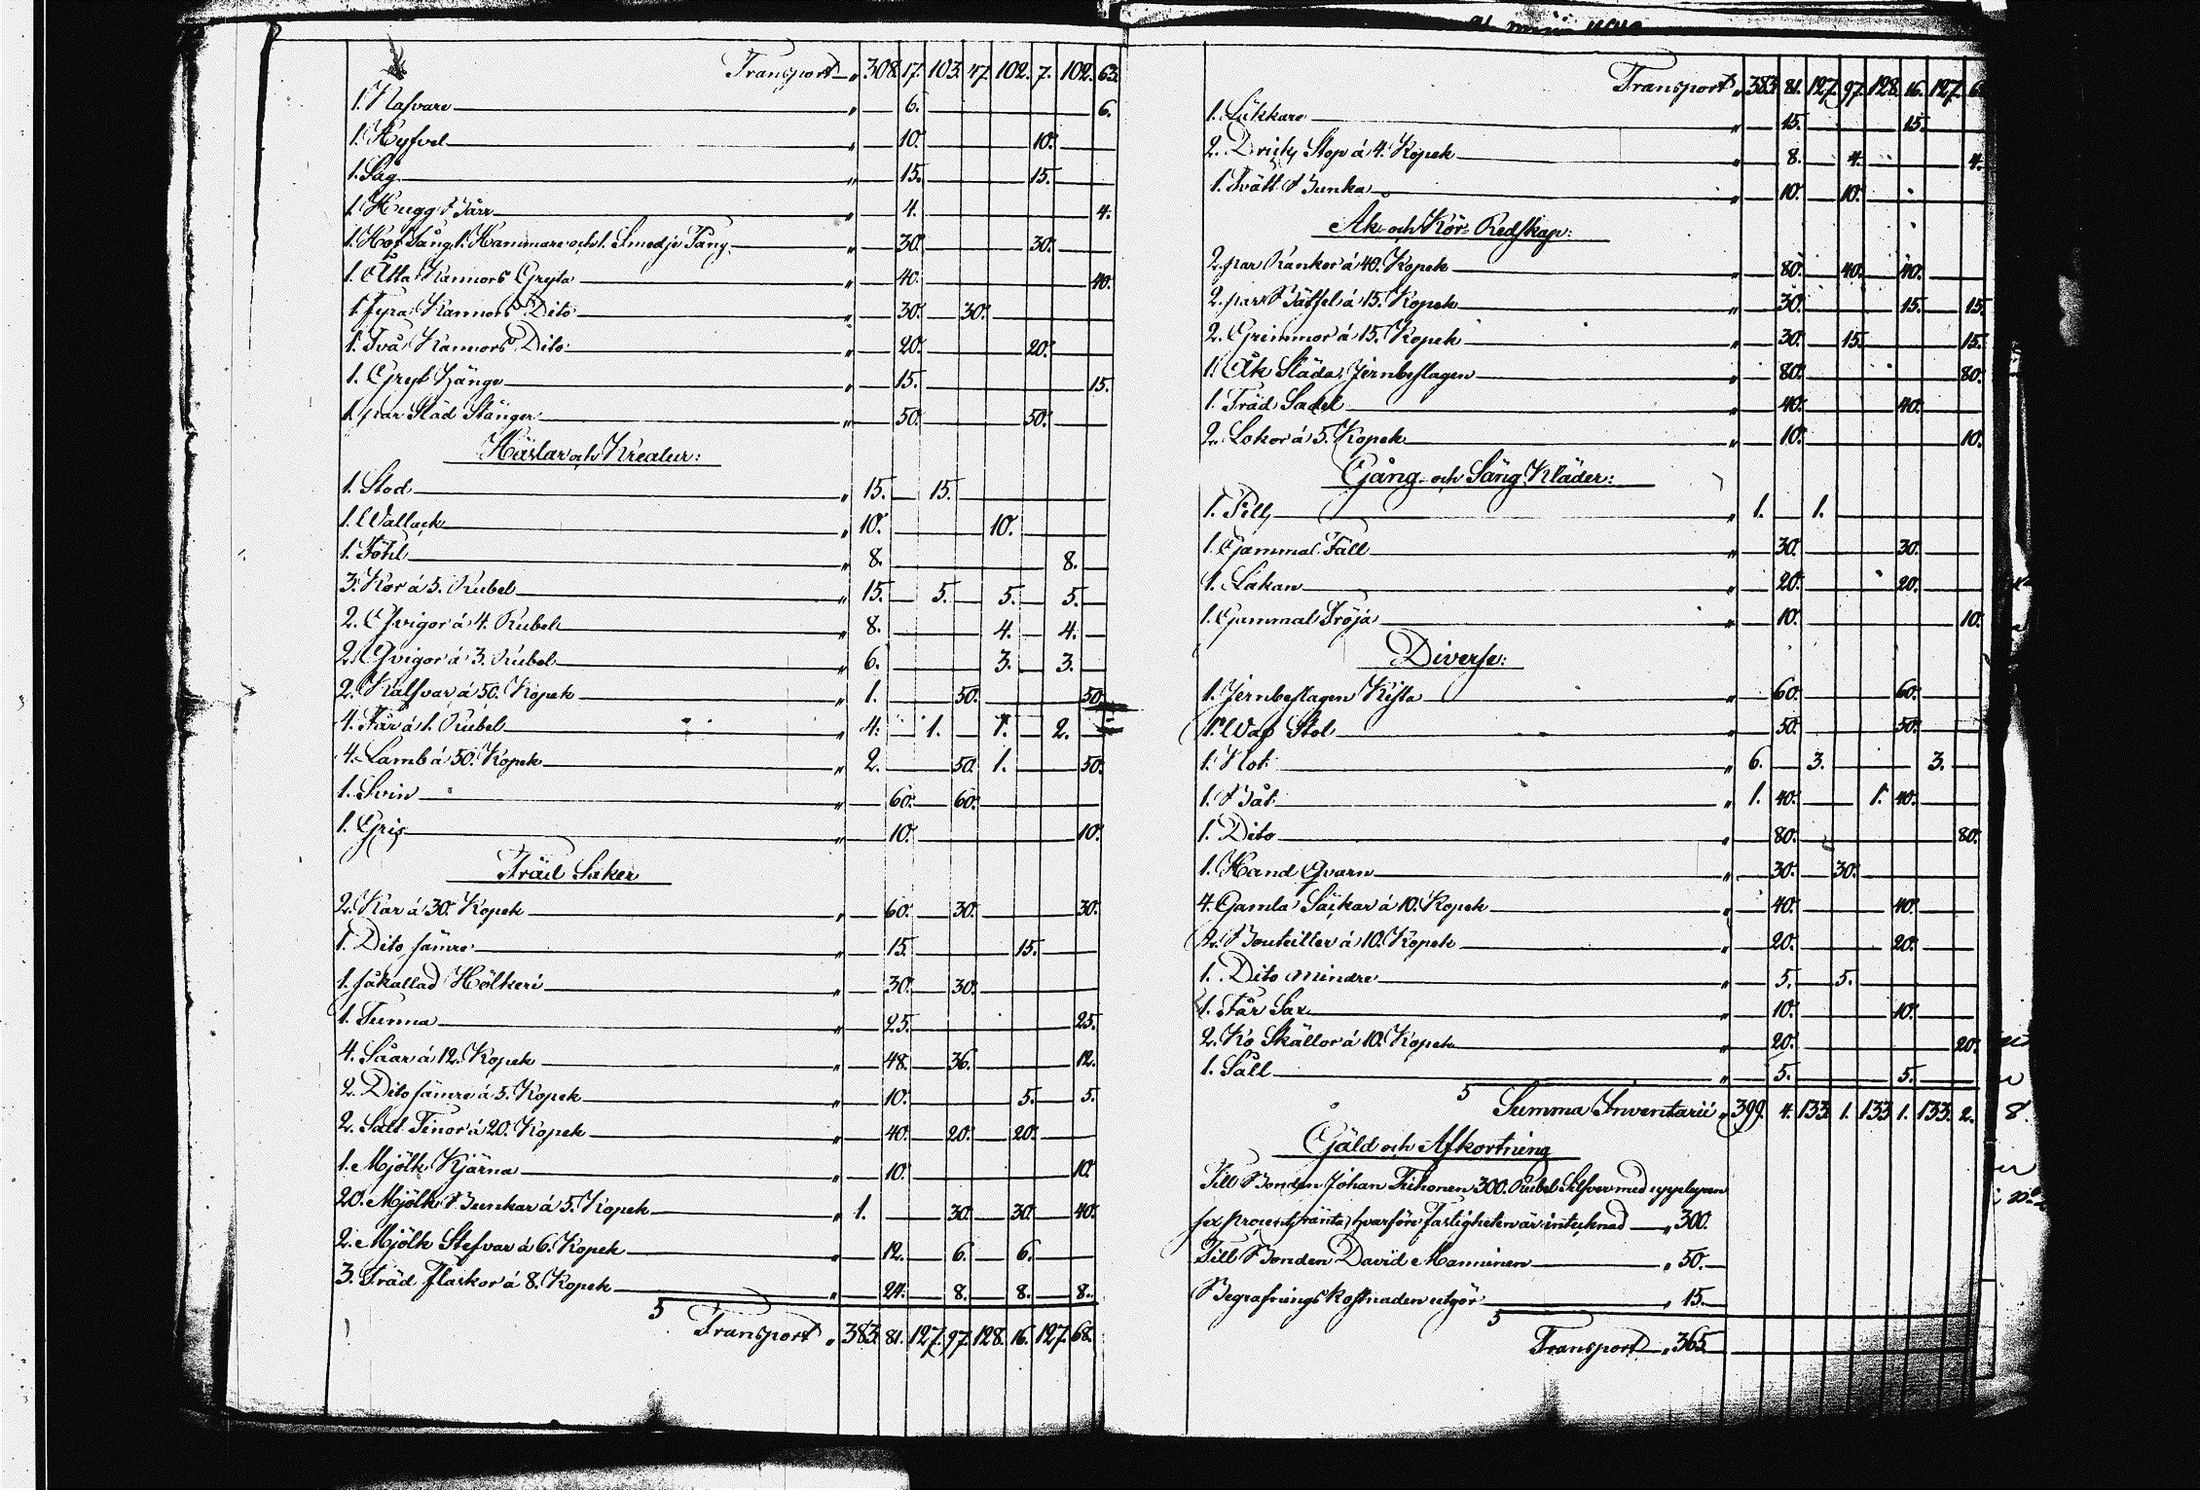 Transport „ 308. 17. 103. 47. 102. 7. 102. 63.
1. Nafvare „ 6. 6.
1. Hyfvel „ 10. 10.
1. Såg „ 15. 15.
1. Hugg Järr „ 4. 4.
1. Hof Tång, 1. Hammare och 1. Smedje Tång „ 30. 30.
1. Åtta Kannors Gryta „ 40. 40.
1. Fyra Kannors Dito „ 30. 30.
1. Två Kannors Dito „ 20. 20.
1. Gryt Hänge „ 15. 15.
1. par Släd Stänger „ 50. 50.
Hästar och Kreatur:
1. Stod „ 15. 15.
1. Wallack „ 10. 10.
1. Föhl „ 8. 8.
3. Kor á 5. Rubel „ 15. 5. 5. 5.
2. Qvigor á 4. Rubel „ 8. 4. 4.
2. Qvigor á 3. Rubel „ 6. 3. 3.
2. Kalfvar á 50. Kopek „ 1. 50. 50.
4. Får á 1. Rubel „ 4. 1. 1. 2.
4. Lamb á 50. Kopek „ 2. 50. 1. 50.
1. Svin „ 60. 60.
1. Gris „ 10. 10.
Träd Saker
2. Kar á 30. Kopek „ 60. 30. 30.
1. Dito sämre „ 15. 15.
1. såkallad Hölkeri „ 30. 30.
1. Tunna „ 25. 25.
4. Såar á 12. Kopek „ 48. 36. 12.
2. Dito sämre á 5. Kopek „ 10. 5. 5.
2. Salt Tinor á 20. Kopek „ 40. 20. 20.
1. Mjölk Kjärna „ 10. 10.
20. Mjölk Bunkar á 5. Kopek „ 1. 30. 30. 40.
2. Mjölk Stefvar á 6. Kopek „ 12. 6. 6.
3. Träd Flaskor á 8. Kopek „ 24. 8. 8. 8.
Transport „ 383. 81. 127. 97. 128. 16. 127. 68.
Transport „ 383. 81. 127. 97. 128. 16. 127. 6
1. Lukkare „ 15. 15.
2. Dricks Stop á 4. Kopek „ 8. 4. 4.
1. Tvätt Bunka „ 10. 10.
Åk- och Kör- Redskap:
2. par Rankor á 40. Kopek „ 80. 40. 40.
2. par Bätsel á 15. Kopek „ 30. 15. 15.
2. Grimmor á 15. Kopek „ 30. 15. 15.
1. Åk Släda, Jernbeslagen „ 80. 80.
1. Träd Sadel „ 40. 40.
2. Lokor á 5. Kopek „ 10. 10.
Gång- och Säng Kläder:
1. Pels „ 1. 1.
1. Gammal Fäll „ 30. 30.
1. Lakan „ 20. 20.
1. Gammal Tröja „ 10. 10.
Diverse:
1. Jernbeslagen Kista „ 60. 60.
1. Wäf Stol „ 50. 50.
1. Not „ 6. 3. 3.
1. Båt „ 1. 40. 1. 40.
1. Dito „ 80. 80.
1. Hand Qvarn „ 30. 30.
4. Gamla Säckar á 10. Kopek „ 40. 40.
2. Bouteiller á 10. Kopek „ 20. 20.
1. Dito mindre „ 5. 5.
1. Får Sax „ 10. 10.
2. Ko Skällor á 10. Kopek „ 20. 20.
1. Såll „ 5. 5.
Summa Inventarii „ 399. 4. 133. 1. 133. 1. 133. 2.
Gäld och Afkortning
Till Bonden Johan Tiihonen 300. Rubel Silfver med upplupen
sex procents ränta, hvarföre Fastigheten är intecknad „ 300.
Till Bonden David Manninen „ 50.
Begrafnings kostnaden utgör „ 15.
Transport „ 365.